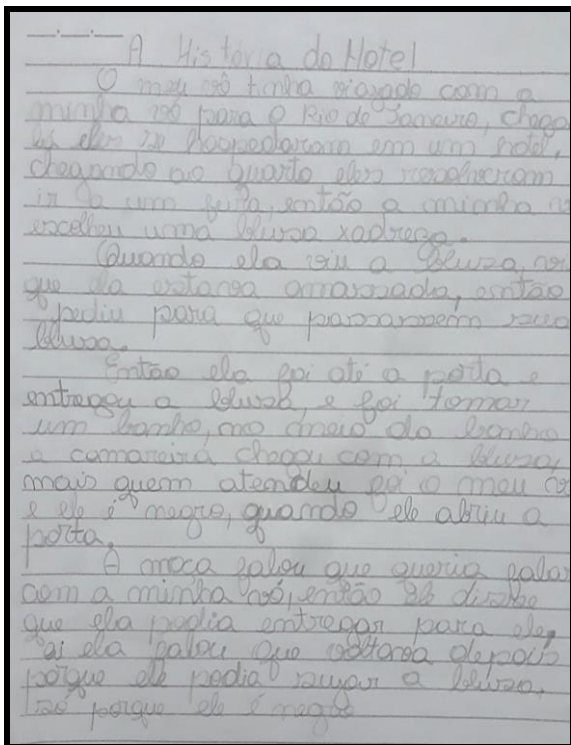 A História do Hotel
O meu vô tinha viazado com a
minha vó para o Rio de Janeiro, chega
lá eles se hospedaram em um hotel,
chegando ao quarto eles resolveram
ir a um, então a minha v
escolheu uma bluza xadreza.
Quando ela viu a bluza, vi
que ela estava amassada, então
pediu para que passassem sua
bluza.
Então ela foi até a porta e
entregou a bluza, e foi tomar
um banho, no meio do banho
a camareira chegou com a bluza,
mais quem atendeu foi o meu vô
e ele é negro, quando ele abriu a
porta.
A moça falou que queria falar
com a minha vó, então ele disse
que ela podia entregar para ele,
ai ela falou que voltava depois
porque ele podia sujar a bluza,
só porque ele é negro